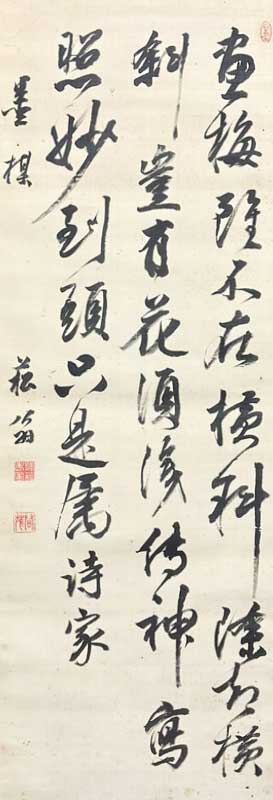 畫梅雖不在橫斜除却橫
斜豈有花須傳神寫
照妙到頭只是屬詩家
墨楳
菘翁